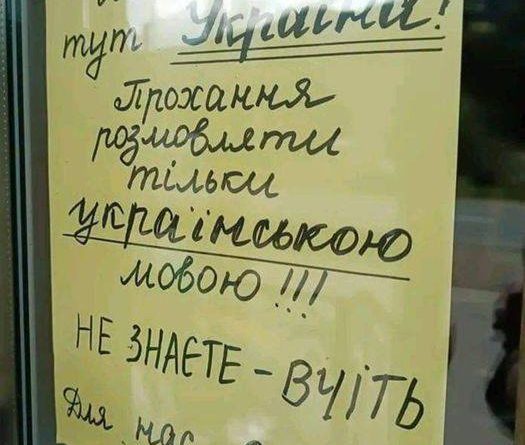 тут Україна!
Прохання
розмовляти
тільки
українською
мовою!!!
НЕ ЗНАЄТЕ - ВЧІТЬ
Для нас